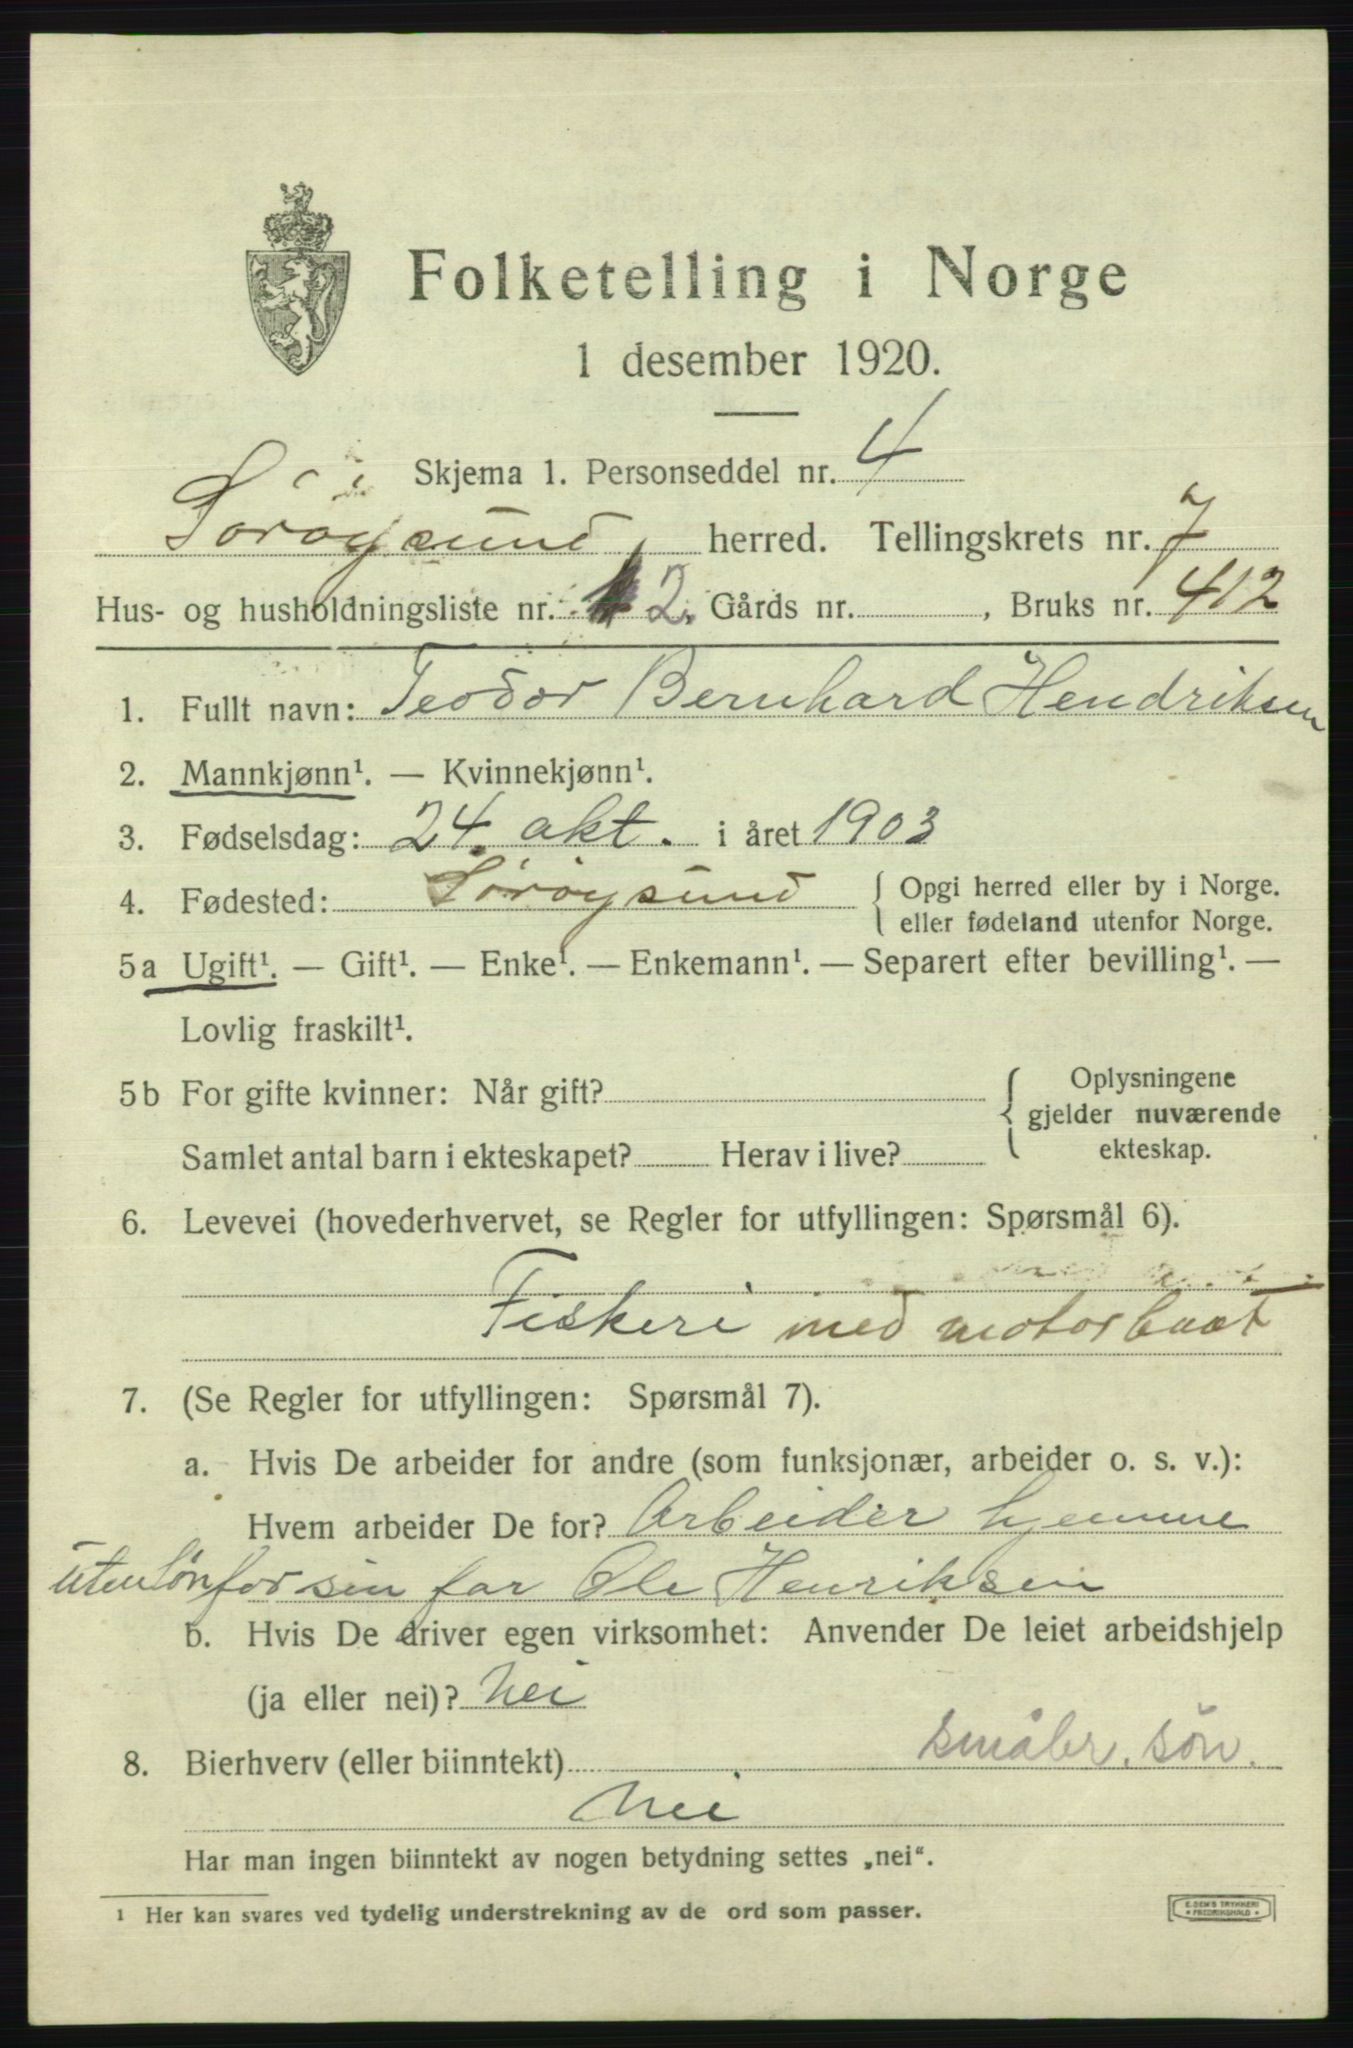 Folketelling i Norge
1 desember 1920.
Skjema 1. Personseddel nr. 4
Sørøysund herred. Tellingskrets nr. 7
Hus- og husholdningsliste nr. 2. Gårds nr. , Bruks nr. 412
1. Fullt navn: Teodor Bernhard Hendriksen
2. Mannkjønn¹. — Kvinnekjønn¹.
3. Fødselsdag: 24. okt. i året 1903
4. Fødested: Sørøysund { Opgi herred eller by i Norge.
eller fødeland utenfor Norge.
5a Ugift¹. — Gift¹. — Enke¹. — Enkemann¹. — Separert efter bevilling¹. —
Lovlig fraskilt¹.
5b For gifte kvinner: Når gift? { Oplysningene
gjelder nuværende
Samlet antal barn i ekteskapet? Herav i live? ekteskap.
6. Levevei (hovederhvervet, se Regler for utfyllingen: Spørsmål 6).
Fiskeri med motorbaat
7. (Se Regler for utfyllingen: Spørsmål 7).
a. Hvis De arbeider for andre (som funksjonær, arbeider o. s. v.):
Hvem arbeider De for? Arbeider hjemme
uten lön for sin far Ole Henriksen
b. Hvis De driver egen virksomhet: Anvender De leiet arbeidshjelp
(ja eller nei)? Nei
8. Bierhverv (eller biinntekt) småbr. sön.
Nei
Har man ingen biinntekt av nogen betydning settes „nei“.
1 Her kan svares ved tydelig understrekning av de ord som passer.
E. SEM'S TRYKKERI
* FREDRIKSHALD *